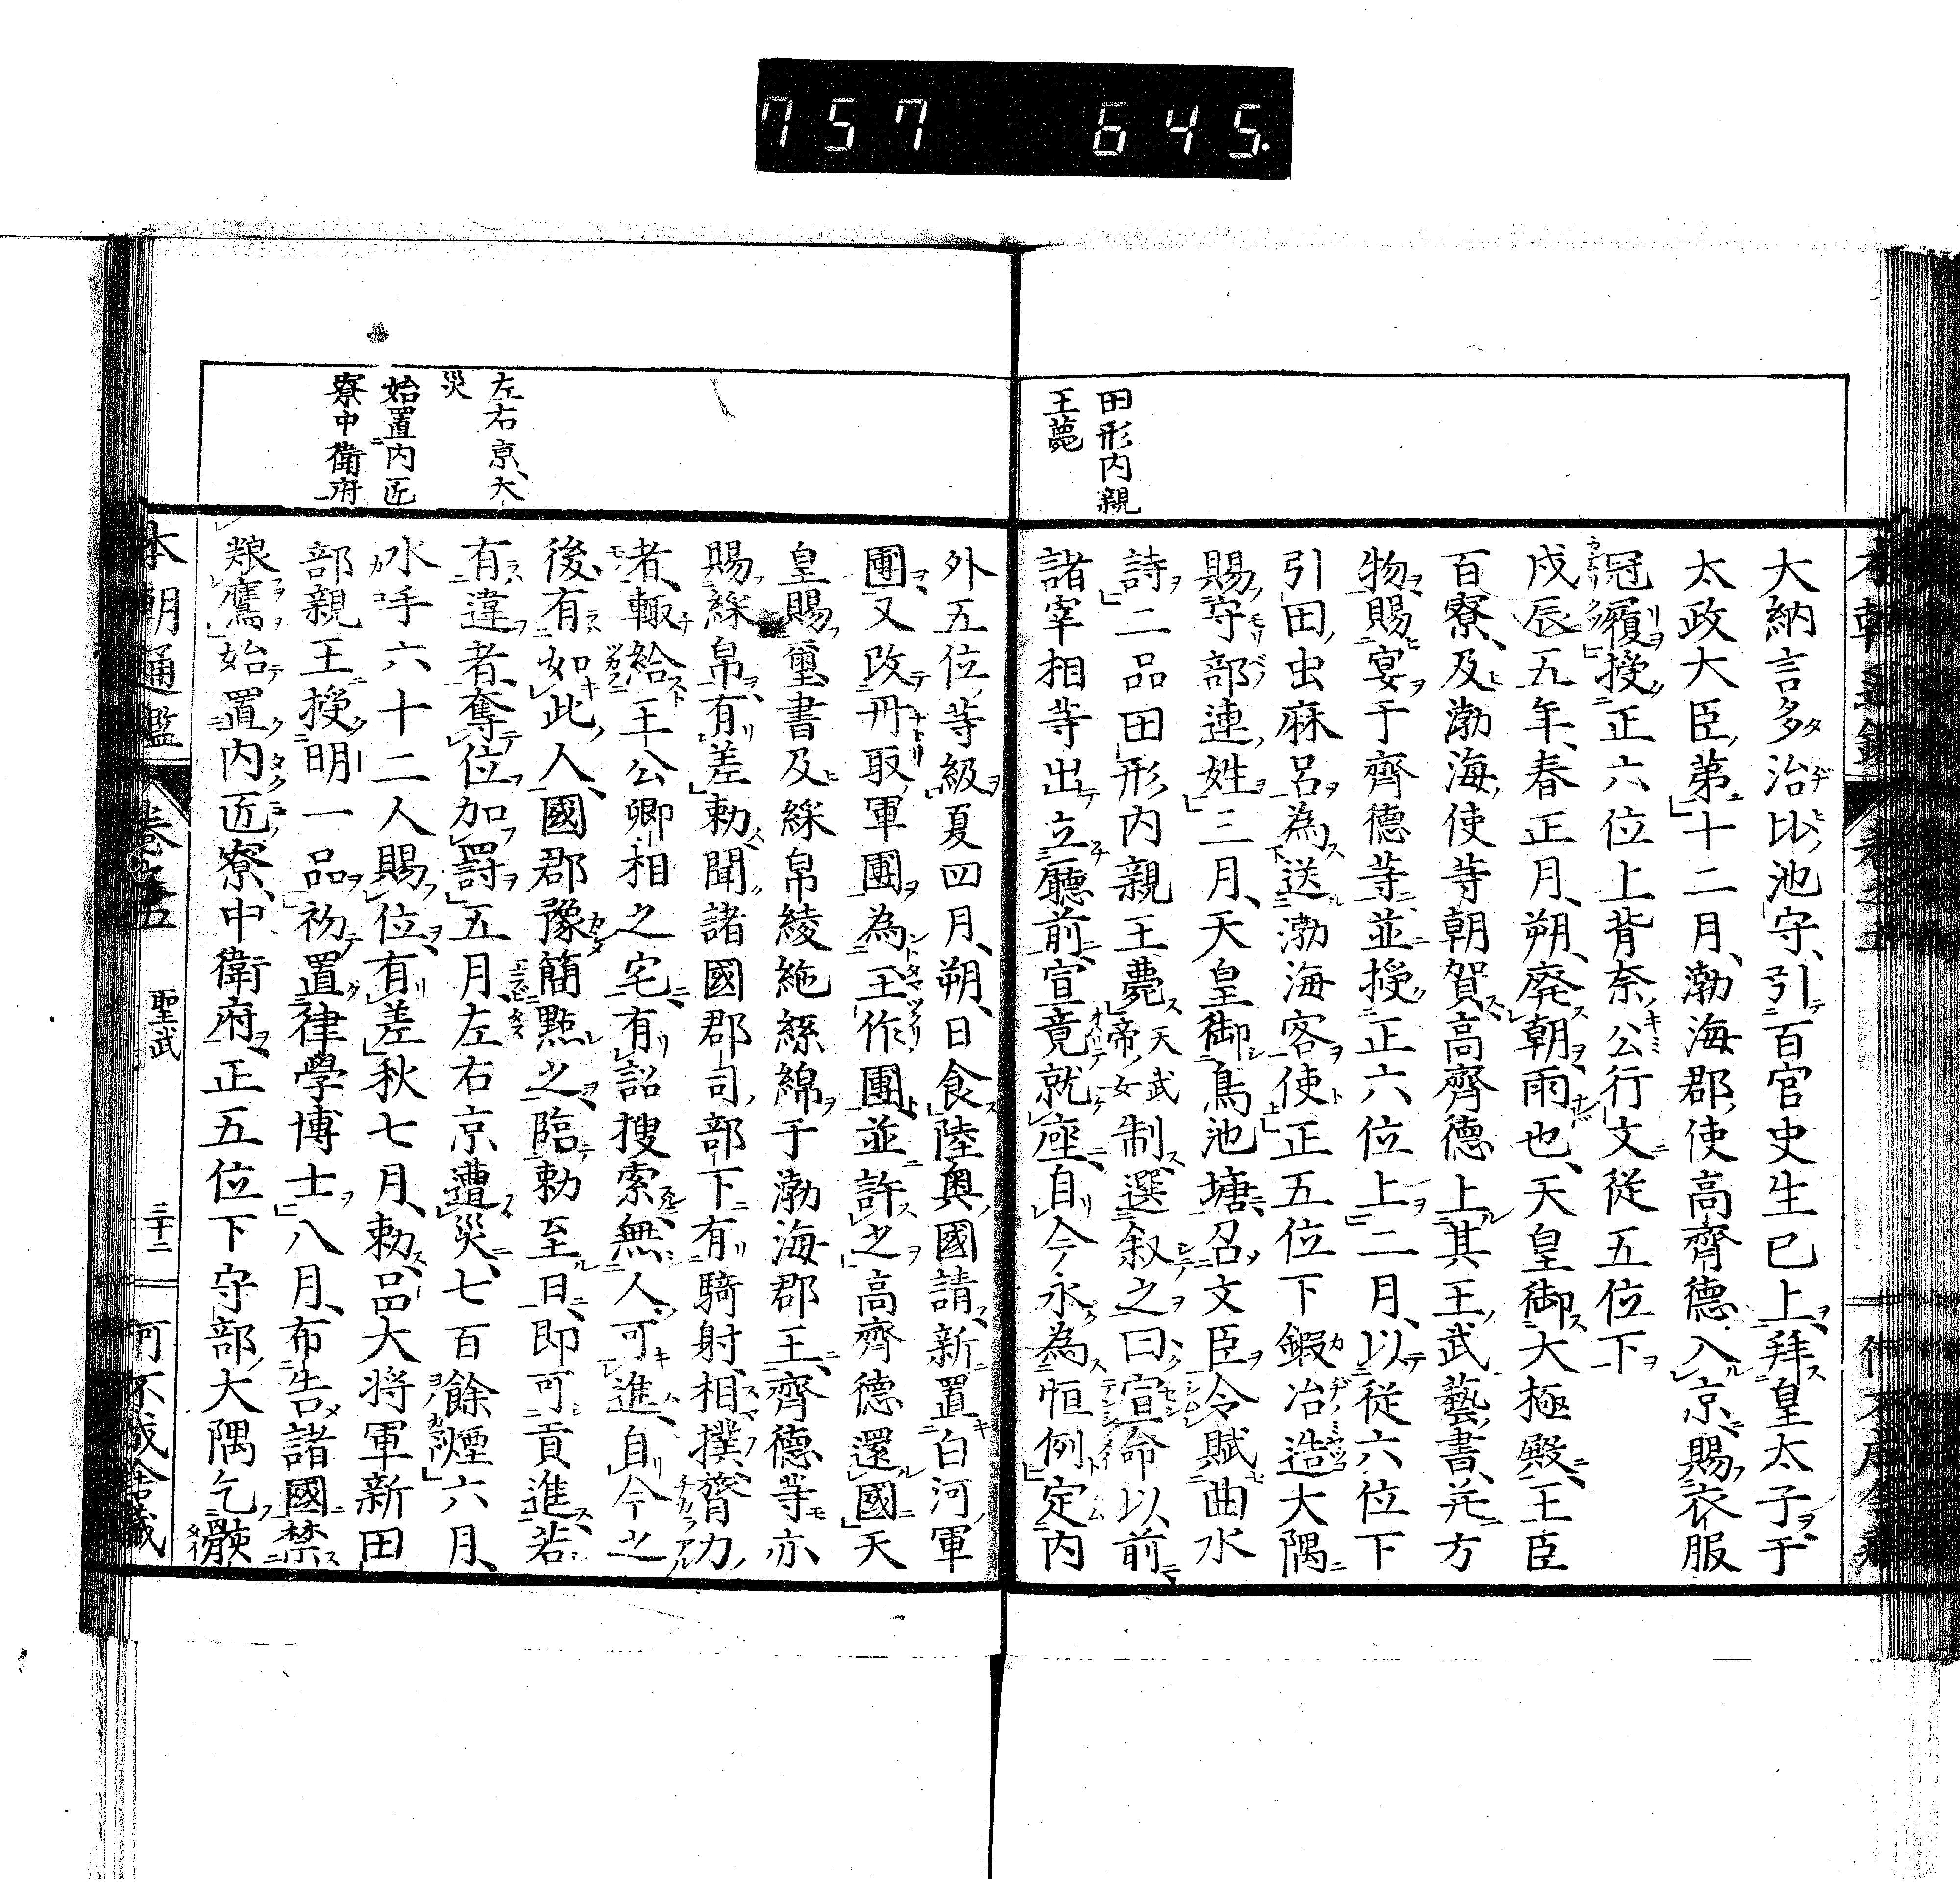 757 645.
田形内親
王薨
大納言多治比池守引百官史生已上拜皇太子于
太政大臣第十二月渤海郡使高齊德入京賜衣服
冠履授正六位上背奈公行文從五位下
戊辰五年春正月朔廃朝雨也天皇御大極殿王臣
百寮及渤海使等朝賀高齊德上其王武藝書并方
物賜宴于齊德等並授正六位上二月以從六位下
引田虫麻呂為送渤海客使正五位下鍛冶造大隅
賜守部連姓三月天皇御鳥池塘召文臣令賦曲水
詩二品田形内親王薨天武帝女制選叙之日宣命以前
諸宰相等出立廳前宣竟就座自今永為恒例定内
左右京大
災
始置内匠
寮中衛府
外五位等級夏四月朔日食陸奥國請新置白河軍
團又改丹取軍團為玉作團並許之高齊德還國天
皇賜璽書及綵帛綾絁絲綿于渤海郡王齊德等亦
賜綵帛有差勅聞諸國郡司部下有騎射相撲膂力
者輙給王公卿相之宅有詔搜索無人可進自今之
後有如此人國郡豫簡點之臨勅至日即可貢進若
有違者奪位加罸五月左右京遭災七百餘煙六月
水手六十二人賜位有差秋七月勅品大将軍新田
部親王授明一品初置律學博士八月布告諸國禁
粮鷹始置内匠寮中衛府正五位下守部大隅乞骸
本朝通鑑 卷之五 聖武 三十二